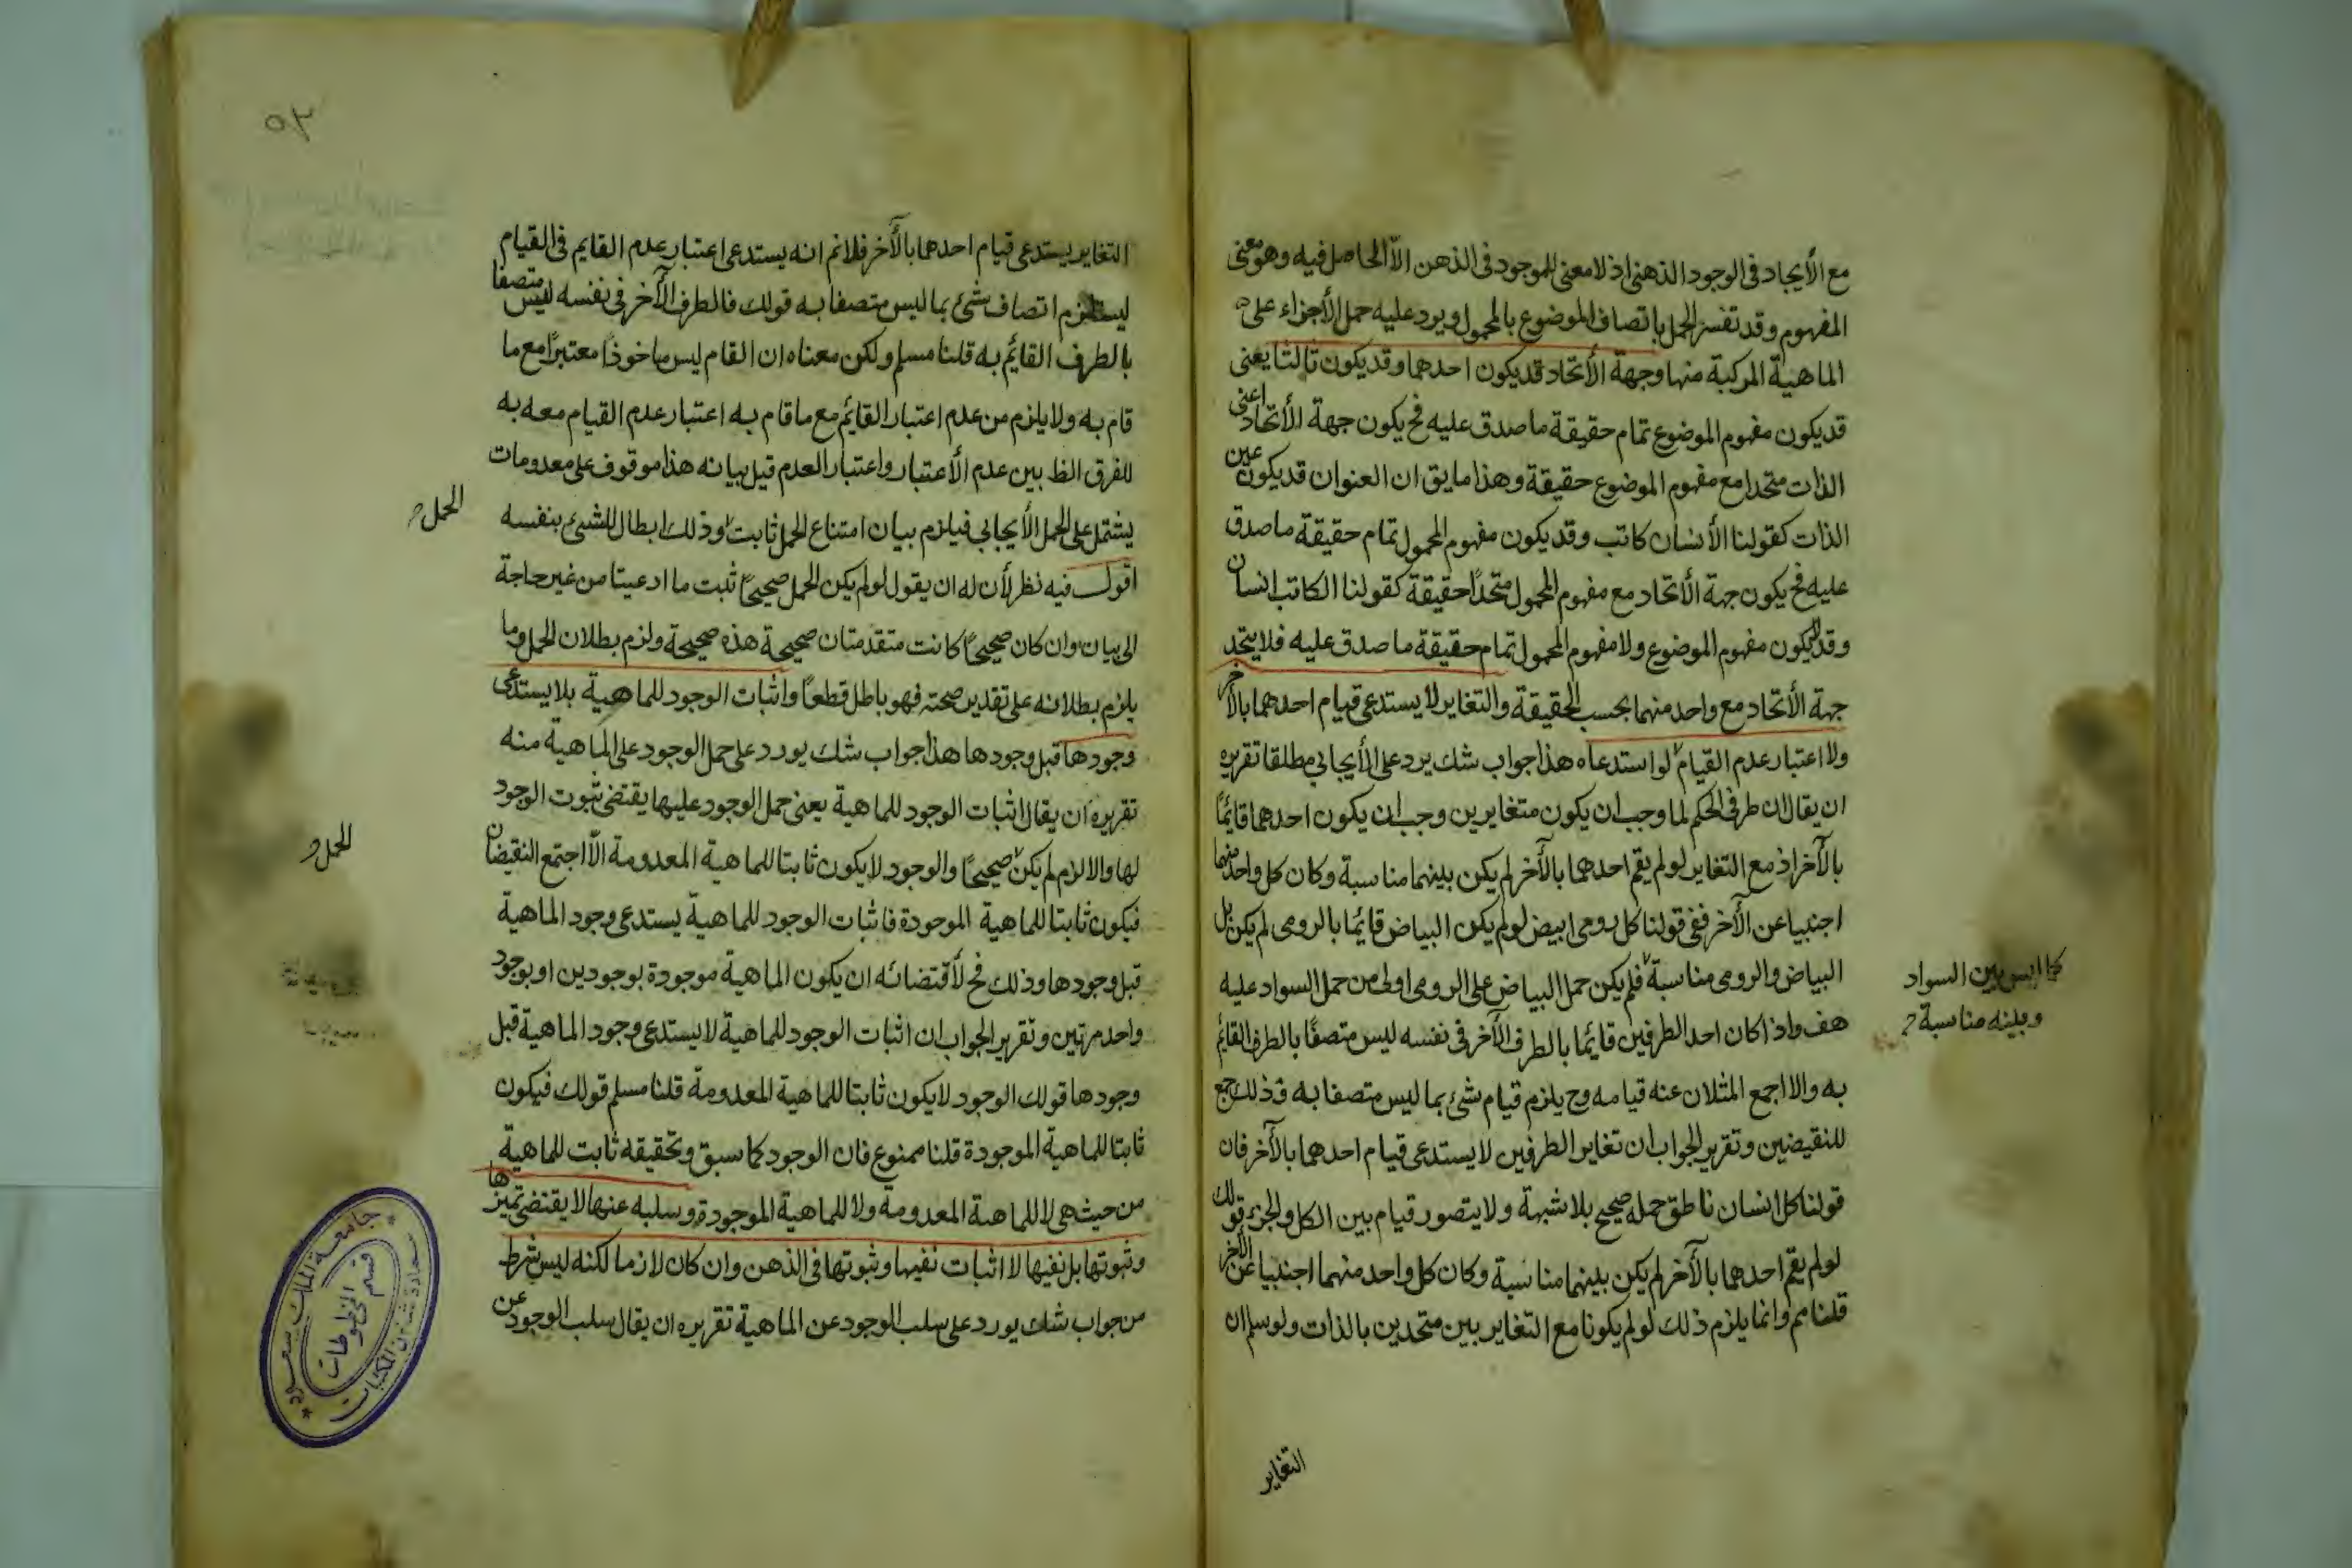 مع الأيجاد فى الوجود الذهنى اذ لا معنى للموجود فى الذهن الاّ الحاصل فيه وهو معنى
المفهوم وقد تفسر الحمل باتصاف الموضوع بالمحمول ويرد عليه حمل الأجزاء على
الماهية المركبة منها وجهة الأتحاد قد يكون احدهما وقد يكون ثالثا يعنى
قد يكون مفهوم الموضوع تمام حقيقة ما صدق عليه فح يكون جهة الأتحاد اعنى
الذات متحدا مع مفهوم الموضوع حقيقة وهذا ما يق ان العنوان قد يكون عين
الذات كقولنا الأنسان كاتب وقد يكون مفهوم المحمول تمام حقيقة ما صدق
عليه فح يكون جهة الأتحاد مع مفهوم المحمول متحدًا حقيقة كقولنا الكاتب انسان
وقد لا يكون مفهوم الموضوع ولا مفهوم المحمول تمام حقيقة ما صدق عليه فلا يتحد
جهة الأتحاد مع واحد منهما بحسب الحقيقة والتغاير لا يستدعى قيام احدهما بالأخر
ولا اعتبار عدم القيام لو استدعاه هذا جواب شك يرد على الأيجابي مطلقا تقريره
ان يقال ان طرفى الحكم لما وجب ان يكون متغايرين وجب ان يكون احدهما قائمًا
بالآخر اذ مع التغاير لو لم يقم احدهما بالآخر لم يكن بينهما مناسبة وكان كل واحد منهما
اجنبيا عن الآخر ففى قولنا كل رومى ابيض لو لم يكن البياض قائما بالرومى لم يكن بين
البياض والرومى مناسبة فلم يكن حمل البياض على الرومى اولى من حمل السواد عليه
كما ليس بين السواد
وبينه مناسبة
هف واذا كان احد الطرفين قائما بالطرف الآخر فى نفسه ليس متصفًا بالطرف القائم
به والا اجمع المثلان عنه قيامه وح يلزم قيام شئ بما ليس متصفا به فذلك جمع
للنقيضين وتقرير الجواب ان تغاير الطرفين لا يستدعى قيام احدهما بالآخر فان
قولنا كل انسان ناطق حمله صحيح بلا شبهة ولا يتصور قيام بين الكل والجزء قولك
لو لم يقم احدهما بالآخر لم يكن بينهما مناسبة وكان كل واحد منهما اجنبيا عن الآخر
قلنا مم وانما يلزم ذلك لو لم يكونا مع التغاير بين متحدين بالذات ولو سلم ان
التغاير
٥٢
التغاير يستدعى قيام احدهما بالأخر فلا نم انه يستدعى اعتبار عدم القايم فى القيام
ليستلزم اتصاف شئ بما ليس متصفا به قولك فالطرف الآخر فى نفسه ليس متصفا
بالطرف القائم به قلنا مسلم ولكن معناه ان القام ليس ماخوذًا معتبرًا مع ما
قام به ولا يلزم من عدم اعتبار القائم مع ما قام به اعتبار عدم القيام معه به
للفرق الظ بين عدم الأعتبار واعتبار العدم قيل بيانه هذا موقوف على معدومات
يشتمل على الحمل الأيجابي فيلزم بيان امتناع الحمل ثابت وذلك ابطال للشئ بنفسه
الحمل
اقول فيه نظر لأن له ان يقول لو لم يكن الحمل صحيحًا ثبت ما ادعيتا من غير حاجة
الى بيان وان كان صحيحًا كانت متقدمتان صحيحة هذه صحيحة ولزم بطلان الحمل وما
يلزم بطلانه على تقدير صحته فهو باطل قطعًا واثبات الوجود للماهية بلا يستدعى
وجودها قبل وجودها هذا جواب شك يورد على حمل الوجود على الماهية منه
تقريره ان يقال اثبات الوجود للماهية يعنى حمل الوجود عليها يقتضى ثبوت الوجود
لها والا لزم لم يكن صحيحًا والوجود لا يكون ثابتا للماهية المعدومة الاّ اجتمع النقيضان
الحمل
فيكون ثابتا للماهية الموجودة فاثبات الوجود للماهية يستدعى وجود الماهية
قبل وجودها وذلك فح لأقتضائه ان يكون الماهية موجودة بوجودين او بوجود
واحد مرتين وتقرير الجواب ان اثبات الوجود للماهية لا يستدعى وجود الماهية قبل
وجودها قولك الوجود لا يكون ثابتا للماهية المعدومة قلنا مسلم قولك فيكون
ثابتا للماهية الموجودة قلنا ممنوع فان الوجود كما سبق وتحقيقه ثابت للماهية
من حيث هى لا للماهية المعدومة ولا للماهية الموجودة وسلبه عنها لا يقتضى تميزها
وثبوتها بل نفيها لا اثبات نفيها وثبوتها فى الذهن وان كان لازما لكنه ليس بشرط
من جواب شك يورد على سلب الوجود عن الماهية تقريره ان يقال سلب الوجود عن
جامعة الملك سعود
عمادة شئون المكتبات
قسم المخطوطات